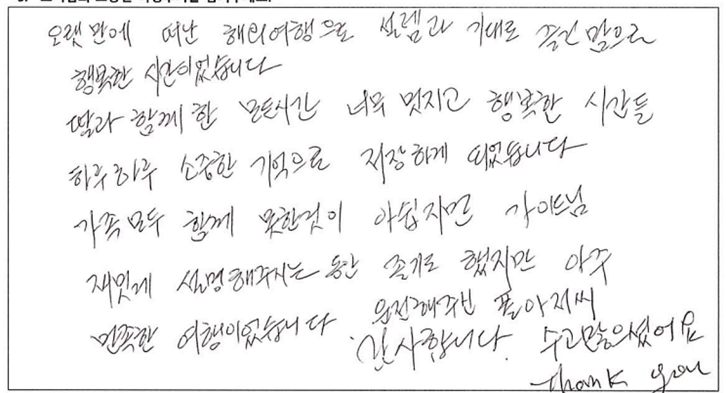 오랫만에 떠난 해외여행으로 설렘과 기대로 즐건 맘으로
행복한 시간이었습니다
딸과 함께 한 모든시간 너무 멋지고 행복한 시간들
하루하루 소중한 기억으로 저장하게 되었습니다
가족모두 함께 못한것이 아쉽지만 가이드님
재밋게 설명해주시는 동안 졸기도 했지만 아주
만족한 여행이었습니다 운전해주신 아저씨
감사합니다. 수고많으셨어요
Thank you